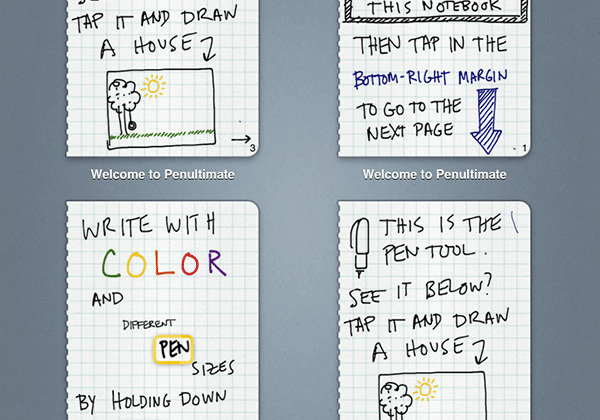 TAP IT AND DRAW
A HOUSE
3
Welcome to Penultimate
THIS NOTEBOOK
THEN TAP IN THE
BOTTOM-RIGHT MARGIN
TO GO TO THE
NEXT PAGE
1
Welcome to Penultimate
WRITE WITH
COLOR
AND
DIFFERENT
PEN
SIZES
BY HOLDING DOWN
THIS IS THE
PEN TOOL.
SEE IT BELOW?
TAP IT AND DRAW
A HOUSE